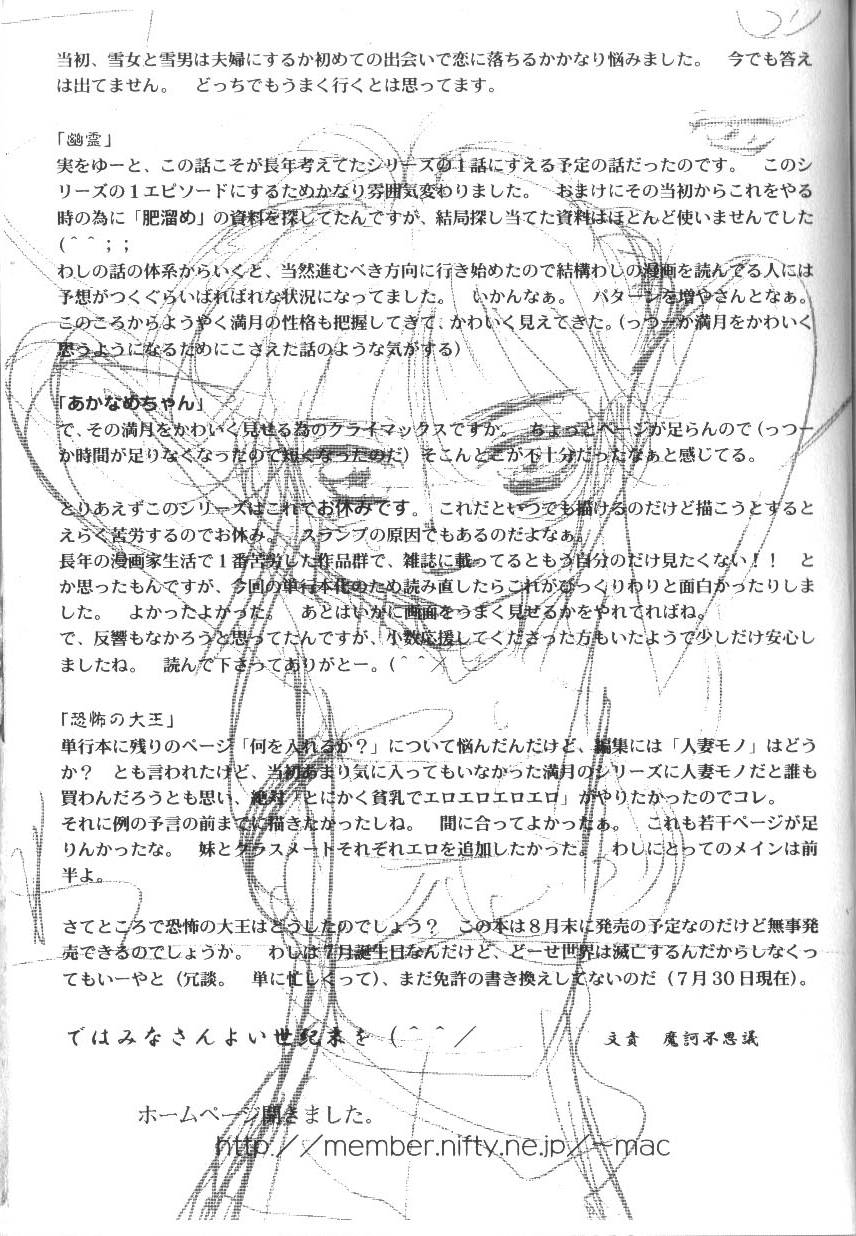 当初、雪女と雪男は夫婦にするか初めての出会いで恋に落ちるかかなり悩みました。　今でも答え
は出てません。　どっちでもうまく行くとは思ってます。
「幽霊」
実をゆーと、この話こそが長年考えてたシリーズの１話にすえる予定の話だったのです。　このシ
リーズの１エピソードにするためかなり雰囲気変わりました。　おまけにその当初からこれをやる
時の為に「肥溜め」の資料を探してたんですが、結局探し当てた資料はほとんど使いませんでした
(＾＾；；
わしの話の体系からいくと、当然進むべき方向に行き始めたので結構わしの漫画を読んでる人には
予想がつくぐらいばればれな状況になってました。　いかんなぁ。　パターンを増やさんとなぁ。
このころからようやく満月の性格も把握してきて、かわいく見えてきた。（っつーか満月をかわいく
思うようになるためにこさえた話のような気がする）
「あかなめちゃん」
で、その満月をかわいく見せる為のクライマックスですか。　ちょっとページが足らんので（っつー
か時間が足りなくなったので短くなったのだ）そこんとこが不十分だったなぁと感じてる。
とりあえずこのシリーズはこれでお休みです。　これだといつでも描けるのだけど描こうとすると
えらく苦労するのでお休み。　スランプの原因でもあるのだよなぁ。
長年の漫画家生活で１番苦労した作品群で、雑誌に載ってるともう自分のだけ見たくない！！　と
か思ったもんですが、今回の単行本化のため読み直したらこれがびっくりわりと面白かったりしま
した。　よかったよかった。　あとはいかに画面をうまく見せるかをやれてればね。
で、反響もなかろうと思ってたんですが、小数応援してくださった方もいたようで少しだけ安心し
ましたね。　読んで下さってありがとー。(＾＾／
「恐怖の大王」
単行本に残りのページ「何を入れるか？」について悩んだんだけど、編集には「人妻モノ」はどう
か？　とも言われたけど、当初あまり気に入ってもいなかった満月のシリーズに人妻モノだと誰も
買わんだろうとも思い、絶対「とにかく貧乳でエロエロエロエロ」がやりたかったのでコレ。
それに例の予言の前までに描きたかったしね。　間に合ってよかったぁ。　これも若干ページが足
りんかったな。　妹とクラスメートそれぞれエロを追加したかった。　わしにとってのメインは前
半よ。
さてところで恐怖の大王はどうしたのでしょう？　この本は８月末に発売の予定なのだけど無事発
売できるのでしょうか。　わしは７月誕生日なんだけど、どーせ世界は滅亡するんだからしなくっ
てもいーやと（冗談。　単に忙しくって）、まだ免許の書き換えしてないのだ（７月３０日現在）。
ではみなさんよい世紀末を（＾＾／　　　　文責　魔訶不思議
ホームページ開きました。
http://member.nifty.ne.jp/~mac